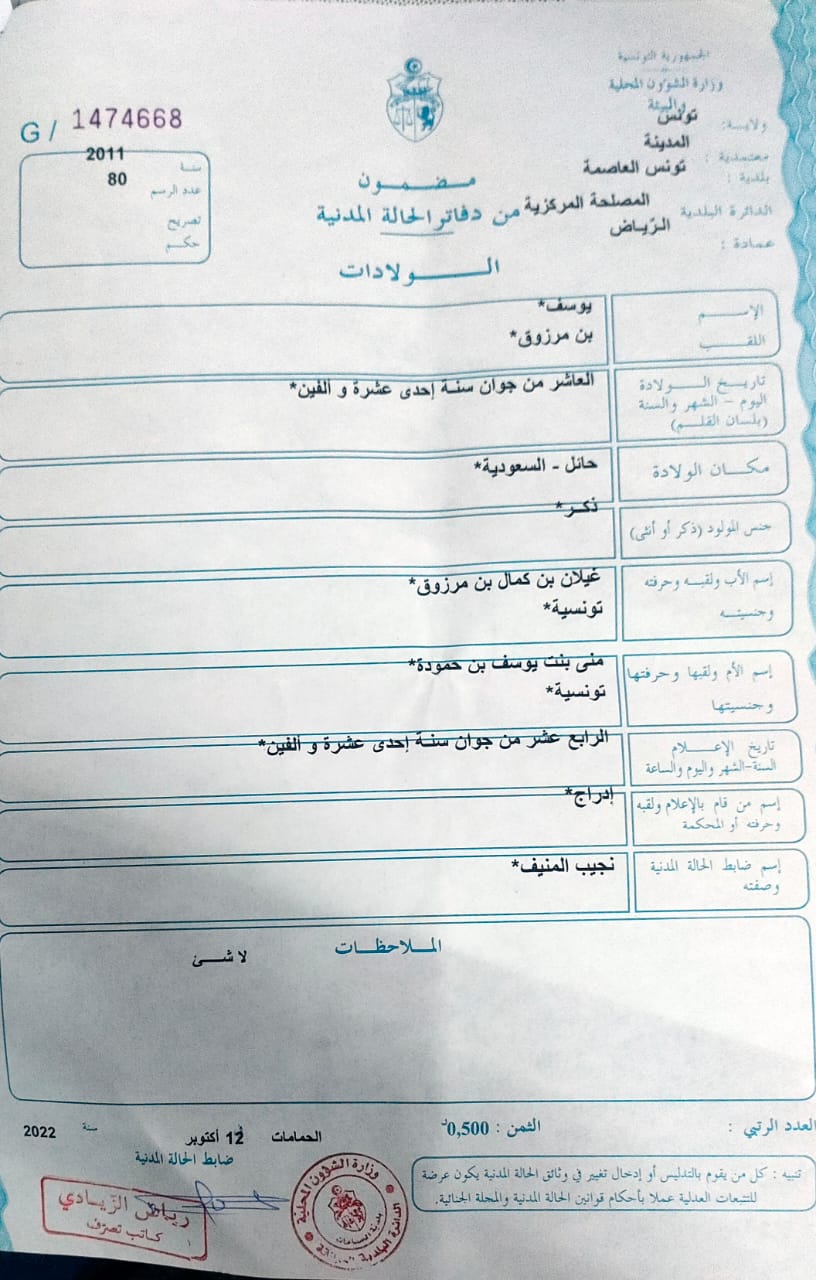 الجمهورية التونسية
وزارة الشؤون المحلية
والبيئة
ولايـة: تونس
معتمدية : المدينة
بلدية : تونس العاصمة
الدائرة البلدية المصلحة المركزية
عمادة : الرّياض
G / 1474668
سنة 2011
عدد الرسم 80
تصريح
حكم
مضمون
من دفاتر الحالة المدنية
الولادات
الإسم يوسف*
اللقب بن مرزوق*
تاريخ الولادة العاشر من جوان سنة إحدى عشرة و ألفين*
اليوم - الشهر والسنة
(بلسان القلم)
مكان الولادة حائل - السعودية*
جنس المولود (ذكر أو أنثى) ذكر*
إسم الأب ولقبه وحرفته غيلان بن كمال بن مرزوق*
وجنسيته تونسية*
إسم الأم ولقبها وحرفتها منى بنت يوسف بن حمودة*
وجنسيتها تونسية*
تاريخ الإعلام الرابع عشر من جوان سنة إحدى عشرة و ألفين*
السنة-الشهر واليوم والساعة
إسم من قام بالإعلام ولقبه إدراج*
وحرفته أو المحكمة
إسم ضابط الحالة المدنية نجيب المنيف*
وصفته
الملاحظات
لا شئ
العدد الرتبي : الثمن : 0,500د
الحمامات 12 أكتوبر سنة 2022
ضابط الحالة المدنية
تنبيه : كل من يقوم بالتدليس أو إدخال تغيير في وثائق الحالة المدنية يكون عرضة
للتتبعات العدلية عملا بأحكام قوانين الحالة المدنية والمجلة الجنائية.
وزارة الشؤون المحلية
الدائرة البلدية
بلدية الحمامات
رياض الزّيادي
كاتب تصرّف